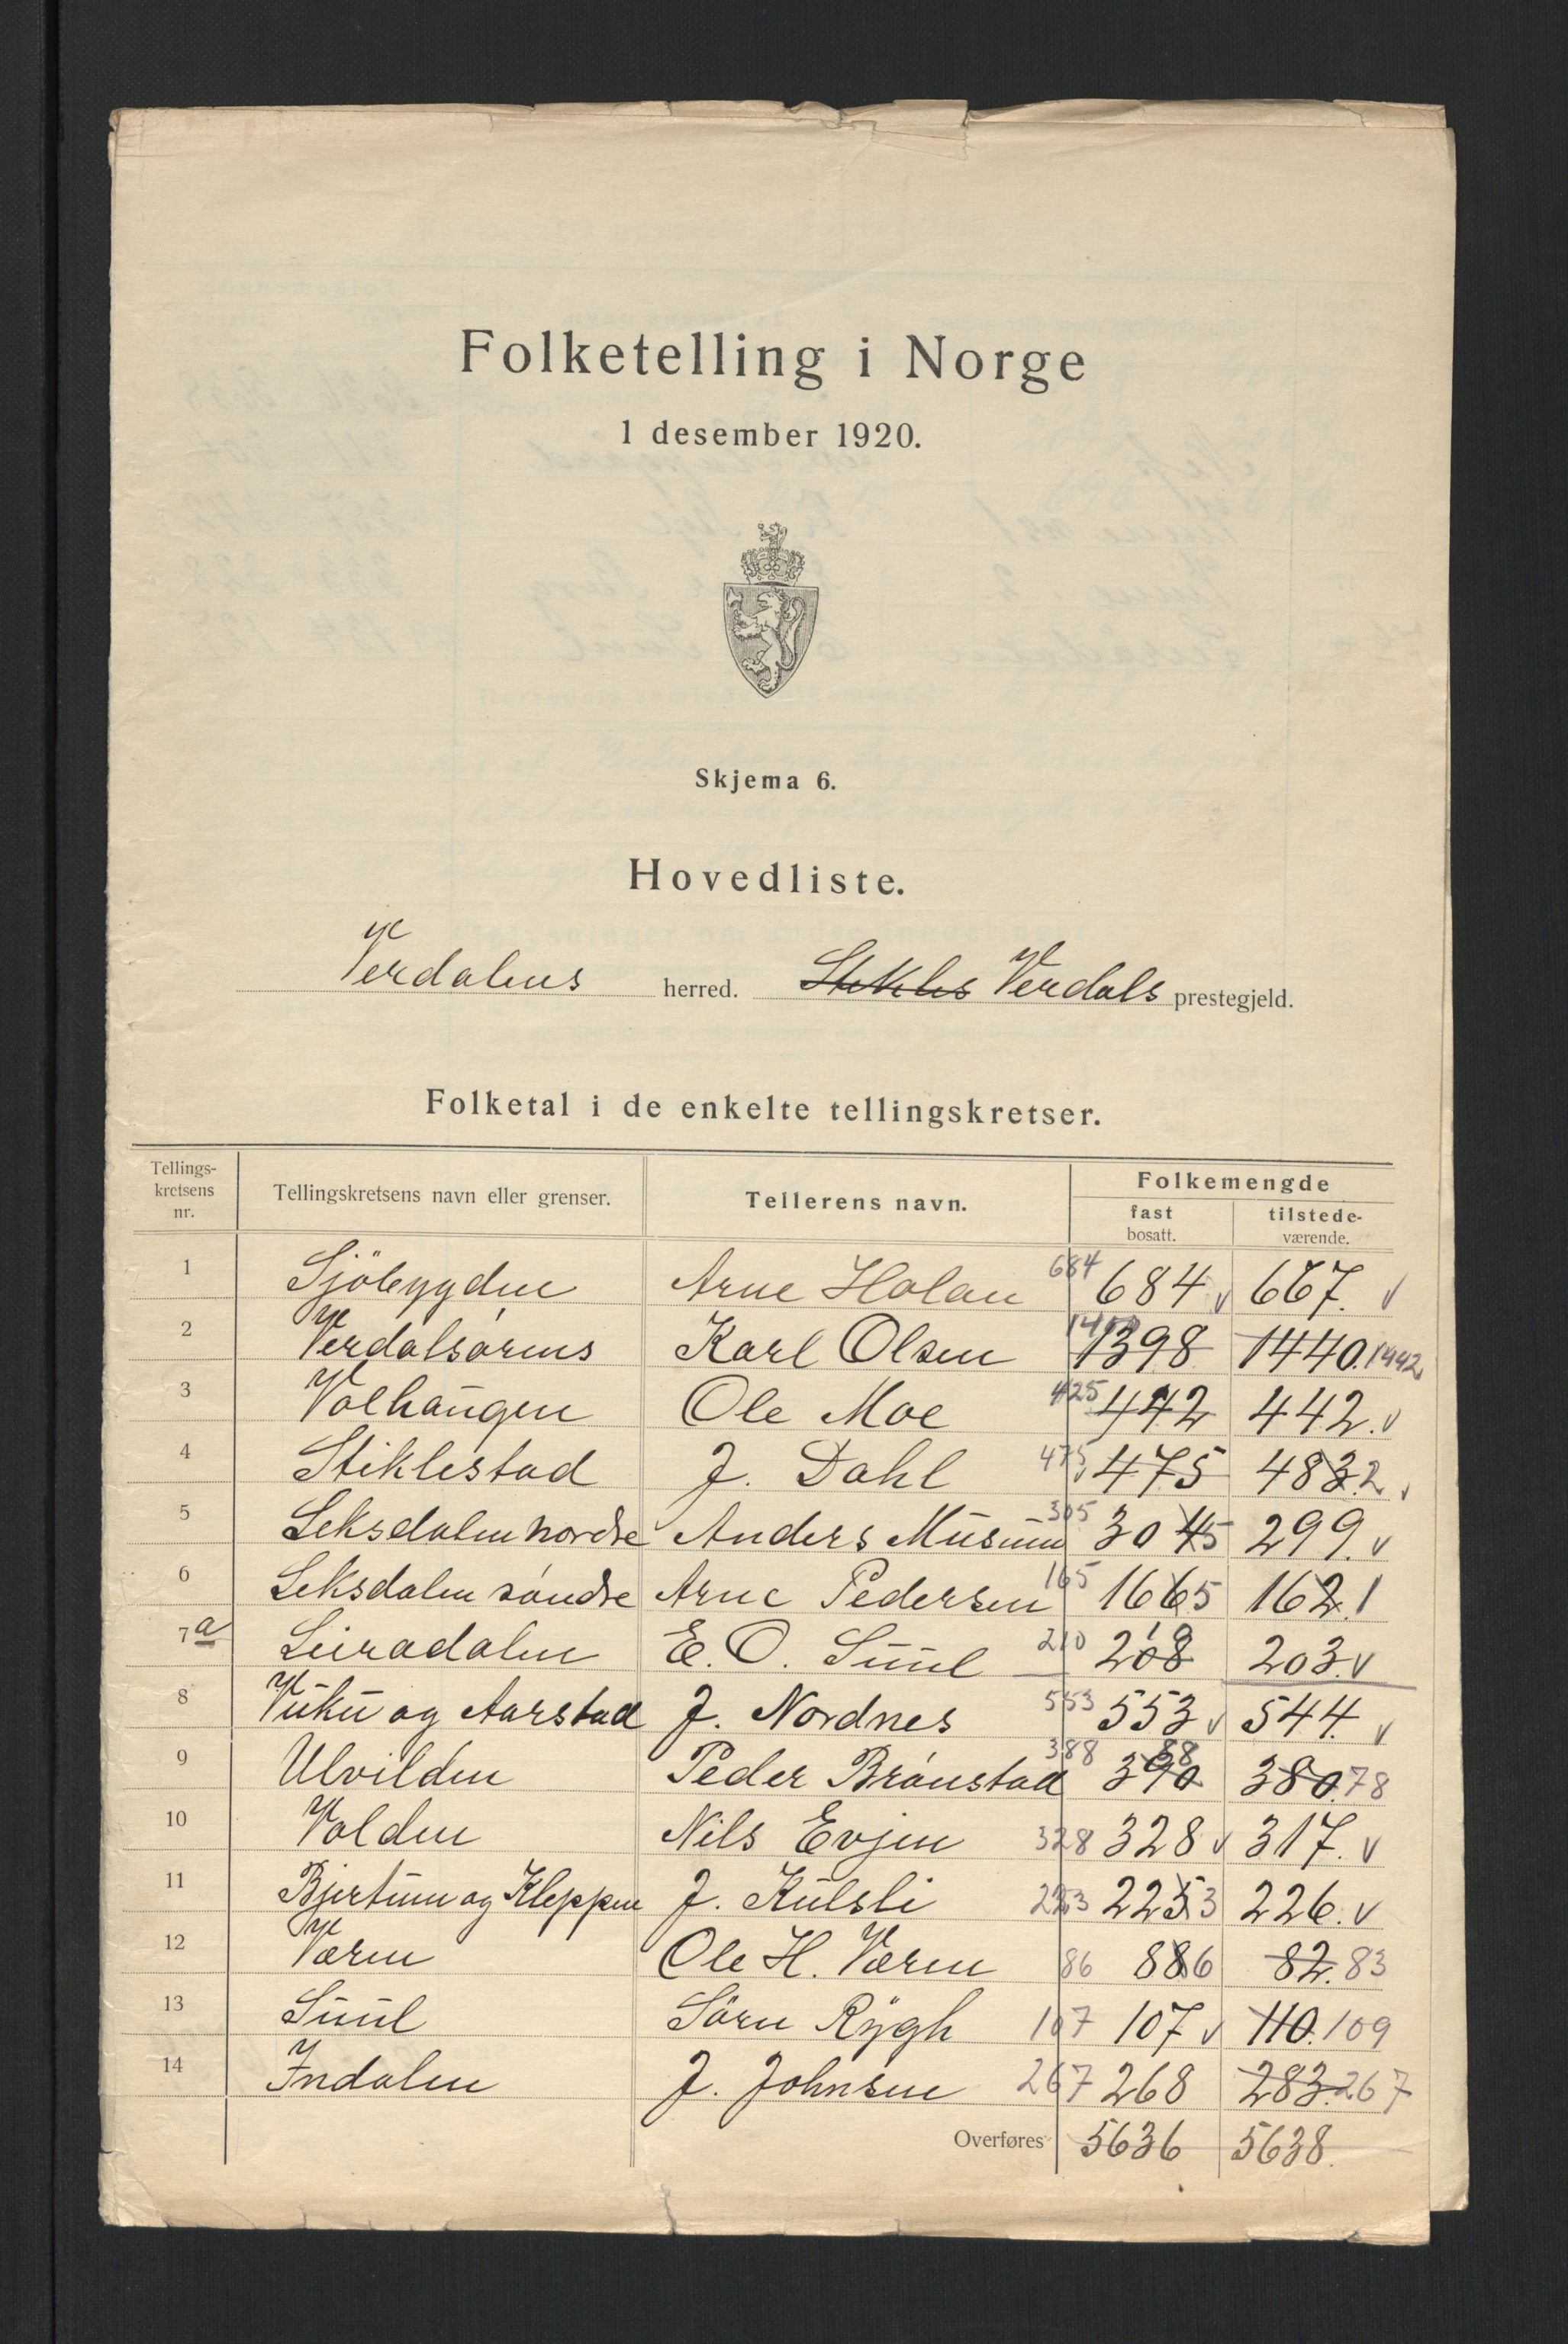 Folketelling i Norge
1 desember 1920.
Skjema 6.
Hovedliste.
Verdalens herred. Stikles Verdals prestegjeld.
Folketal i de enkelte tellingskretser.
Tellings-kretsens nr. Tellingskretsens navn eller grenser. Tellerens navn. Folkemengde
fast bosatt. tilstede-værende.
1 Sjöbygden Arne Holan 684 684 v 667. v
2 Verdalsørens Karl Olsen 1398 1440. 1442
3 Volhaugen Ole Moe 425 442 442. v
4 Stiklestad J. Dahl 475 v 475 483. 2 v
5 Leksdalen nordre Anders Musum 305 304 5 299. v
6 Leksdalen søndre Arne Pedersen 165 166 5 162. 1
7 a Leiradalen E. O. Suul 210 208 10 203. v
8 Vuku og Aarstad J. Nordnes 553 553 v 544. v
9 Ulvilden Peder Brønstad 388 390 88 380. 78
10 Volden Nils Evjen 328 328 v 317. v
11 Bjertum og Kleppen J. Kulsli 223 225 3 226. v
12 Væren Ole H. Væren 86 88 6 82. 83
13 Suul Sørn Rygh 107 107 v 110. 109
14 Indalen J. Johnsen 267 268 283. 267
Overføres 5636 5638.